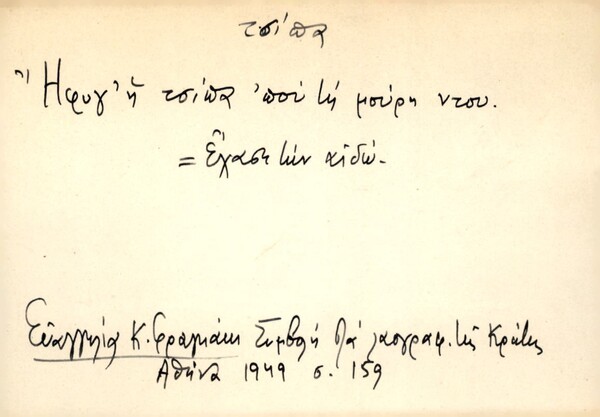 τσίπα
Ἤφυγ' ἡ τσίπα 'πού τή μούρη ντου.
= Ἔχασε τήν αἰδώ.
Εὐαγγελία Κ. Φραγκάκι Συμβολή στά λαογραφ. τῆς Κρήτης
Ἀθήνα 1949 σ. 159